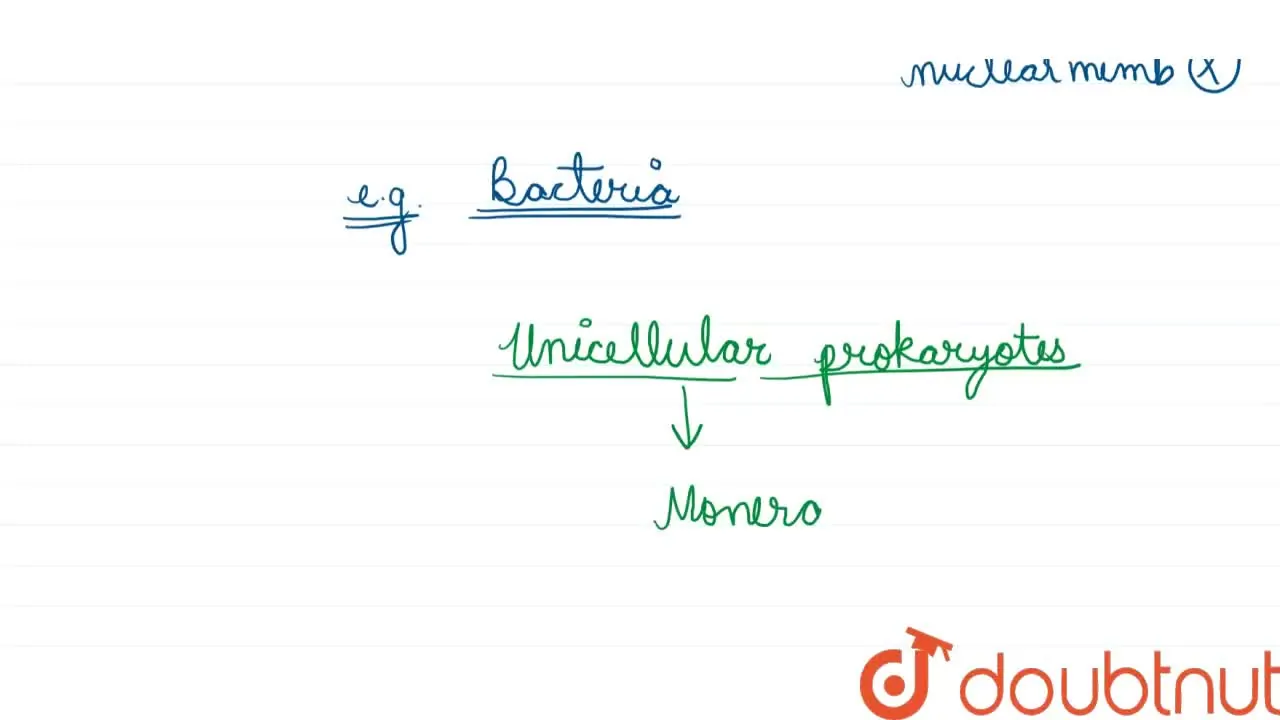 nuclear memb (X)
e.g. Bacteria
Unicellular prokaryotes
↓
Monera
doubtnut